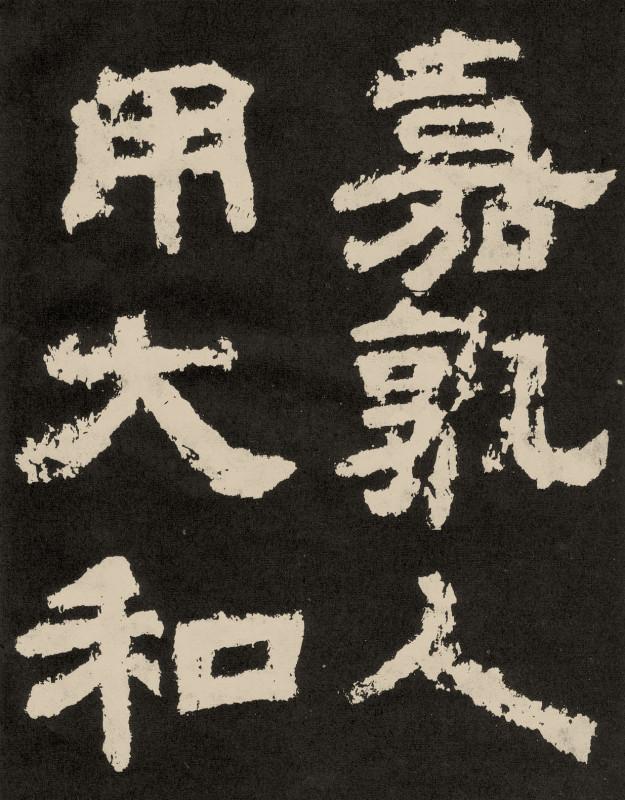 嘉孰人
用大和